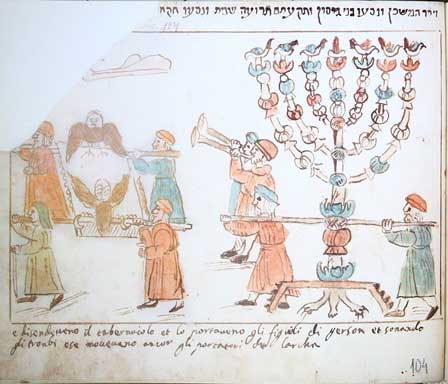 המשכן ונסעו בני גרשון ותקעתם תרועה שנית ונסעו
104
il tabernacolo et lo portaveno gli figioli di gerson et sonando
gli tronbi e se moveveno ancor gli portatori larcha
104